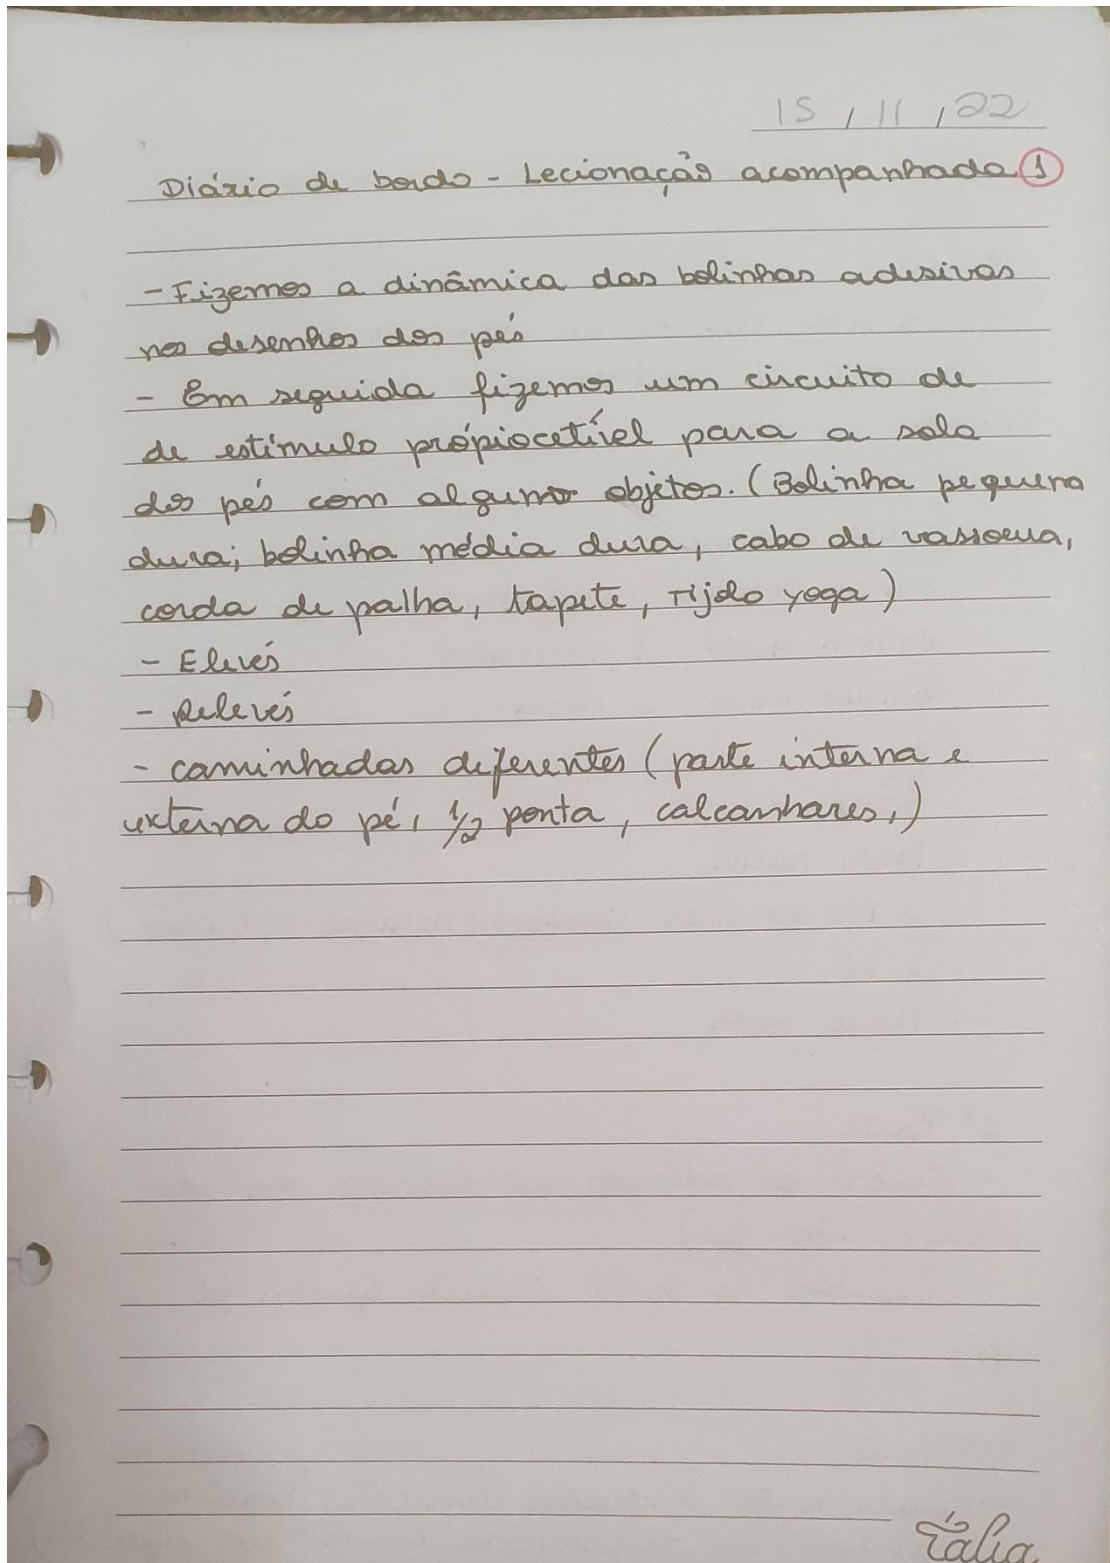 15 / 11 / 22
Diário de bordo - Lecionação acompanhada 1
- Fizemos a dinâmica das bolinhas adesivas
nos desenhos dos pés
- Em seguida fizemos um circuito de
de estímulo própiocetível para a sola
dos pés com algumas objetos. (Bolinha pequena
dura; bolinha média dura, cabo de vassoura,
corda de palha, tapete, tijolo yoga)
- Elevés
- Relevés
- caminhadas diferentes (parte interna e
externa do pé, 1/2 ponta, calcanhares,)
Tália